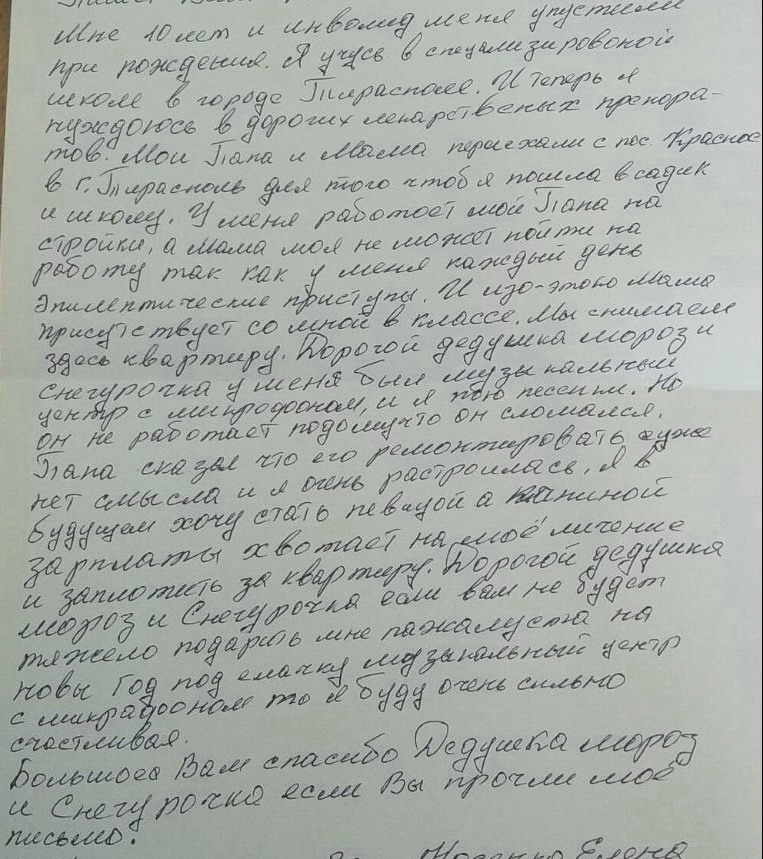 Мне 10 лет и инвалид меня упустили
при рождения. Я учусь в спецализировоной
школе в городе Тирасполе. И теперь я
нуждоюсь в дорогих лекарственых препора-
тов. Мои Папа и Мама переехали с пос. Красное
в г. Тирасполь для того чтоб я пошла в садик
и школу. У меня работоет мой Папа на
стройки, а Мама моя не может пойти на
работу так как у меня каждый день
эпилептические приступы. И изо-этого Мама
присутствует со мной в классе. Мы снимаем
здесь квартиру. Дорогой дедушка мороз и
снегурочка у меня был музыкальный
центр с микрофоном, и я пою песенки. Но
он не работает подомучто он сломался.
Папа сказал что его ремонтировать уже
нет смысла и я очень растроилась. Я в
будущем хочу стать певицой а папиной
зарплаты хвотает на моё личение
и заплотить за квартиру. Дорогой дедушка
мороз и Снегурочка если вам не будет
тяжело подарить мне пажалуста на
новы Год под елачку музыкальный центр
с микрафоном то я буду очень сильно
счастливая.
Большоеа Вам спасибо Дедушка мороз
и Снегурочка если Вы прочли моё
письмо.
Елена